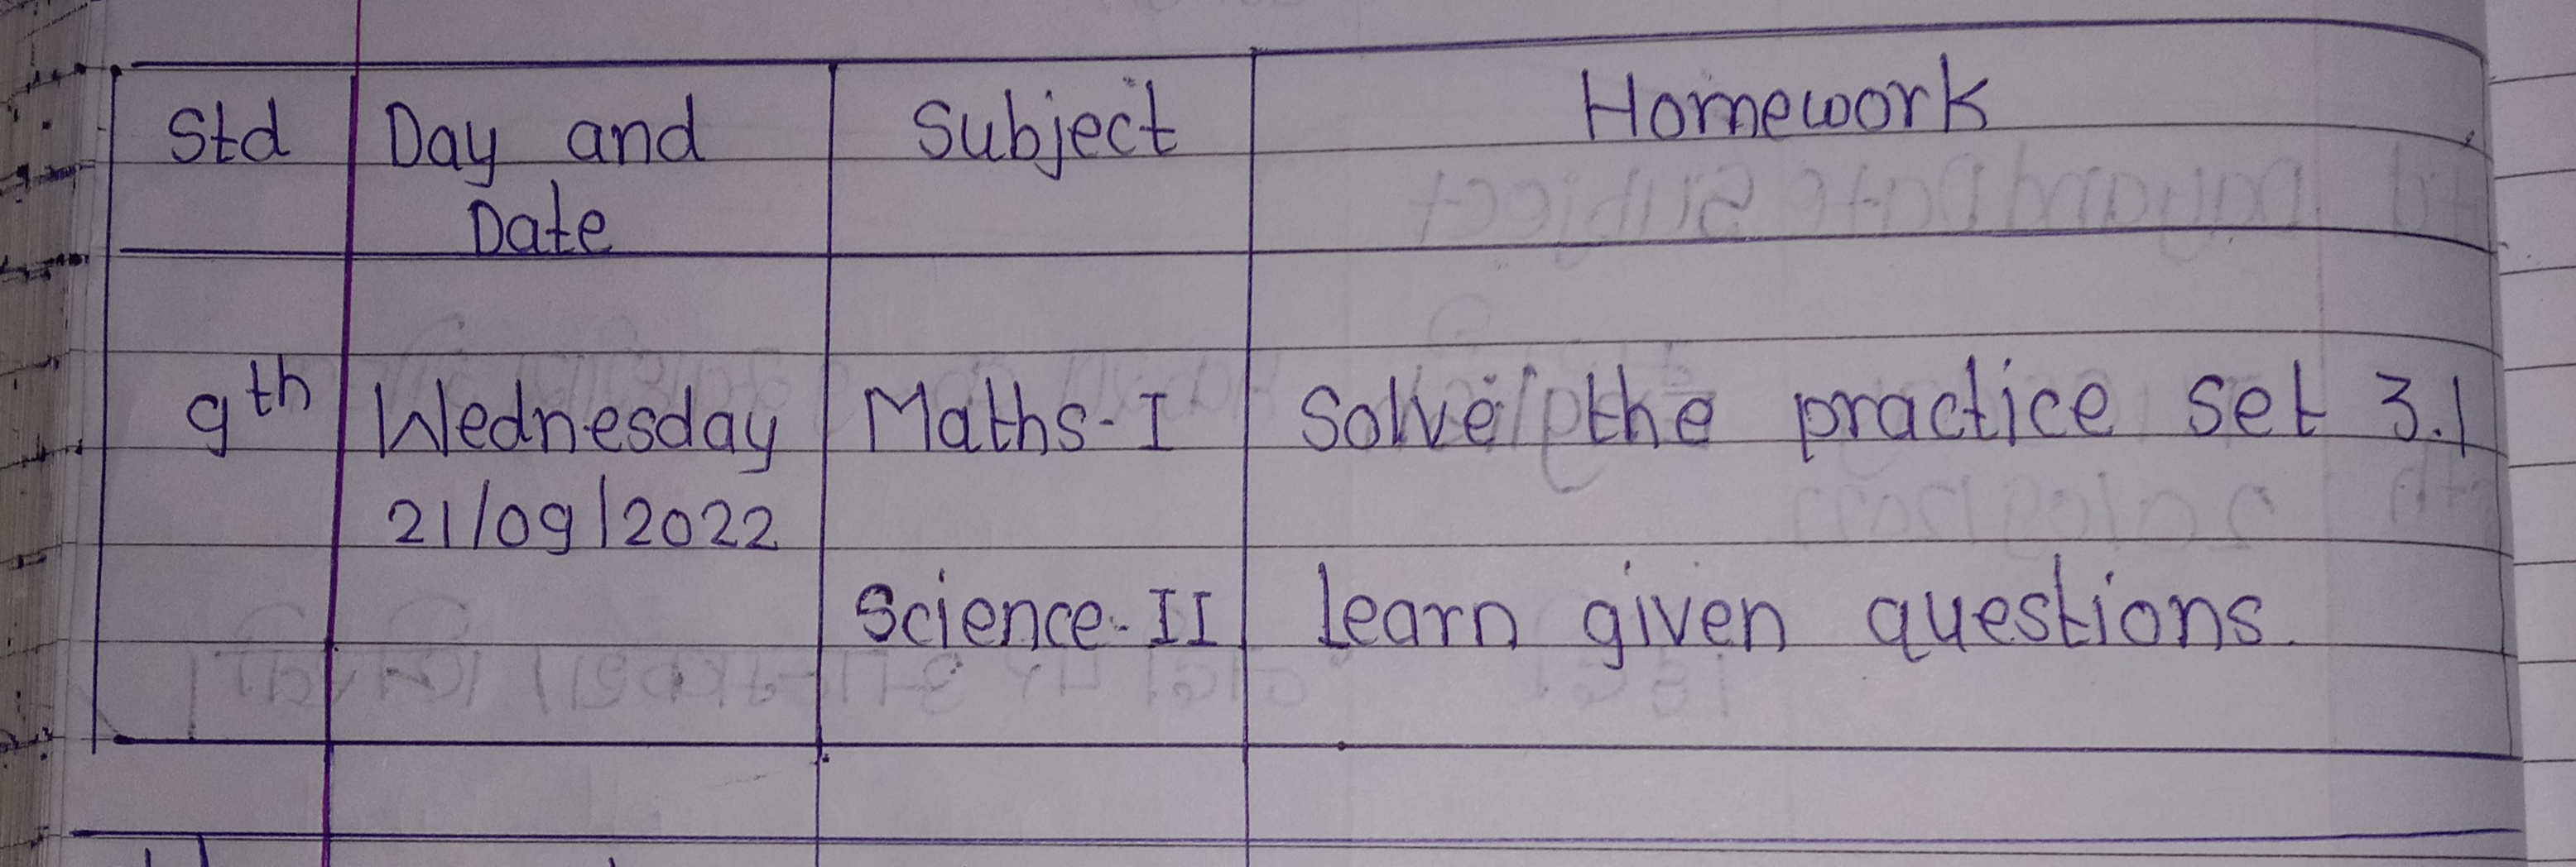 Std Day and Subject Homework
Date
9th Wednesday Maths-I Solve the practice set 3.1
21/09/2022
Science-II learn given questions.